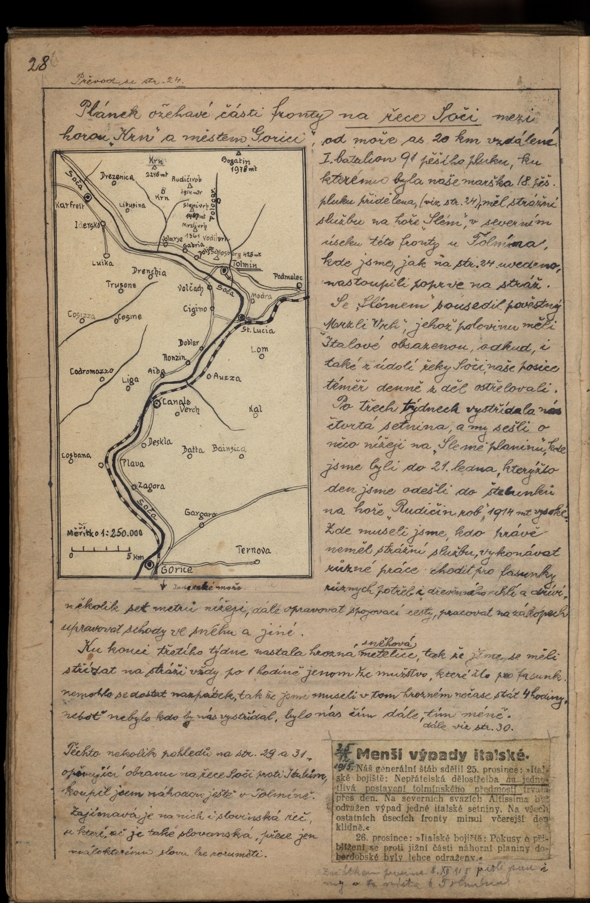 28
Převod se str. 24.
Plánek ožehavé části fronty na řece Soči mezi
horou „Krn“ a městem Goricí
od moře as 20 km vzdálené.
I. batalion 91 pěšího pluku, ku
kterému byla naše marška 18. pěš.
pluku přidělena, (viz str. 24) měl strážní
službu na hoře „Slém“, v severním
úseku této fronty u Tolmina,
kde jsme, jak na str. 24 uvedeno,
nastoupili poprvé na stráž.
Se „Slémem“ sousedil pověstný
Mrzli Vrh“, jehož polovinu měli
Italové obsazenou, odkud, i
také z údolí řeky Soči, naše posice
téměř denně z děl ostřelovali.
Po třech týdnech vystřídala nás
čtvrtá setnina, a my sešli o
něco nížeji na „Slemé planinu“, kde
jsme byli do 21. ledna, kterýžto
den jsme odešli do štelunků
na hoře „Rudičin rob“, 1914 mt vysoké.
Zde museli jsme, kdo právě
neměl strážní službu, vykonávat
různé práce choditi pro fasunky
různých potřeb i
několik set metrů nížeji, dále upravovat spojovací cesty, pracovat na zákopech
upravovat schody ve sněhu a jiné.
Ku konci třetího týdne nastala hrozná sněhová metelice, tak že jsme se měli
střídat na stráži vždy po 1 hodině jenomže mužstvo, které šlo pro fasunk
nemohlo se dostat nazpátek, tak že jsme museli v tom hrozném nečase stát 4 hodiny,
neboť nebylo kdo by nás vystřídal, bylo nás čím dále, tím méně.
dále viz str. 30.
Těchto několik pohledů na str. 29 a 31
obranu na řece Soči proti Italům,
koupil jsem náhodou ještě v Tolmíně.
Zajímavá je na nich i slovinská řeč,
u které, ač je také slovanská, přece jen
některému slovu lze rozuměti.
Krn
Bogatin
1978 mt
Drezenica
Soča
Krn
Rudičin rob
Tolminka
Karfreit
Libusina
Idersko
Gabria
Vodil vrh
Luika
Drenchia
Tolmin
Podmelec
Trusone
Volčach
Soča
Modra
Cosizza
Cosine
Cigino
St. Lucia
Dobler
Lom
Ronzin
Cadromazzo
Liga
Aiba
Auzza
Canale
Verch
Kal
Deskla
Losbana
Plava
Batta
Bainsica
Zagora
Soča
Gargaro
Měřítko 1:250.000
0
5 km
Ternova
Gorice
Menší výpady italské.
Náš generální štáb sdělil 25. prosince: »Ital-
ské bojiště: Nepřátelská dělostřelba na jedno-
tlivá postavení tolmínského předmostí trvala
přes den. Na severních svazích Altissima byl
odražen výpad jedné italské setniny. Na všech
ostatních úsecích fronty minul včerejší den
klidně.«
26. prosince: »Italské bojiště: Pokusy o při-
blížení se proti jižní části náhorní planiny do-
berdobské byly lehce odraženy.«